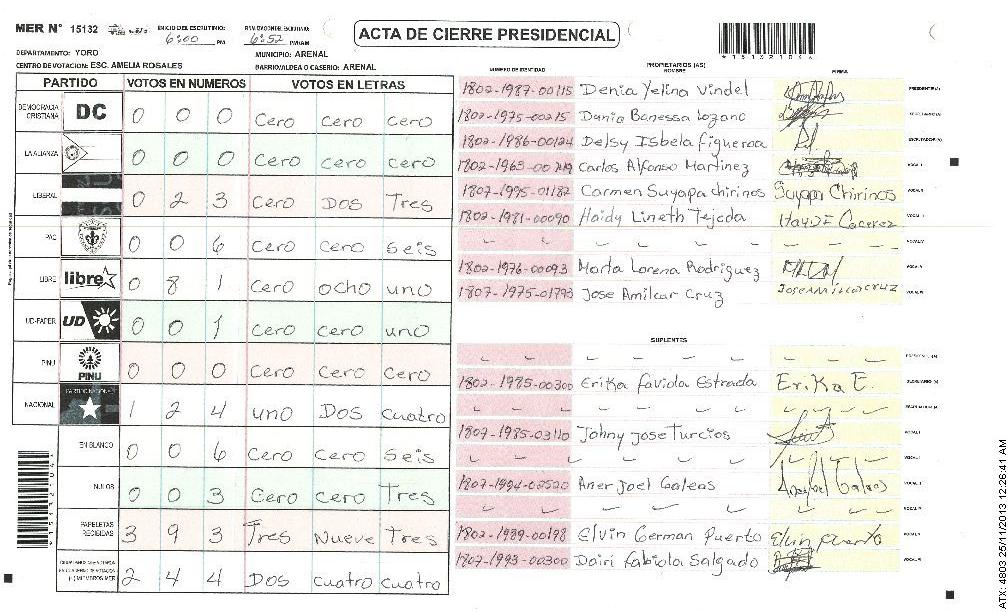 MER N° 15132
INICIO DEL ESCRUTINIO: 6:00 PM
FINALIZACION DEL ESCRUTINIO: 6:52 PM/AM
ACTA DE CIERRE PRESIDENCIAL
*151321044
DEPARTAMENTO: YORO
MUNICIPIO: ARENAL
CENTRO DE VOTACION: ESC. AMELIA ROSALES
BARRIO/ALDEA O CASERIO: ARENAL
PARTIDO VOTOS EN NUMEROS VOTOS EN LETRAS
DEMOCRACIA CRISTIANA DC 0 0 0 Cero Cero Cero
LA ALIANZA 0 0 0 Cero cero cero
LIBERAL 0 2 3 Cero Dos Tres
PAC 0 0 6 Cero Cero seis
LIBRE libre 0 8 1 Cero ocho uno
UD-FAPER UD 0 0 1 Cero cero uno
PINU PINU 0 0 0 Cero Cero Cero
NACIONAL PARTIDO NACIONAL 1 2 4 uno Dos cuatro
EN BLANCO 0 0 6 Cero Cero Seis
NULOS 0 0 3 Cero Cero Tres
PAPELETAS RECIBIDAS 3 9 3 Tres Nueve Tres
2 4 4 Dos cuatro cuatro
NUMERO DE IDENTIDAD
PROPIETARIOS (AS)
NOMBRE
FIRMA
1802-1987-00115 Denia Yelina Vindel PRESIDENTE(A)
1802-1975-00215 Dunia Banessa Lozano SECRETARIO (A)
1802-1986-00124 Delsy Isbela figueroa ESCRUTADOR (A)
Carlos Alfonso Martinez VOCAL I
1807-1995-01182 Carmen Suyapa chirinos Suyapa Chirinos VOCAL II
1802-1981-00090 Haidy Lineth Tejeda VOCAL III
VOCAL IV
1802-1976-00093 Marta Lorena Rodriguez VOCAL V
1807-1975-01793 Jose Amilcar Cruz JOSE AMILCAR CRUZ VOCAL VI
SUPLENTES
PRESIDENTE (A)
1802-1985-00300 Erika faviola Estrada Erika E. SECRETARIO (A)
ESCRUTADOR (A)
1807-1985-03110 Johny jose Turcios VOCAL I
VOCAL II
1807-1994-02520 Aner Joel Galeas VOCAL III
VOCAL IV
1802-1989-00198 Elvin German Puerto Elvin puerto VOCAL V
1807-1993-00300 Dairi fabiola Salgado VOCAL VI
ATX: 4803 25/11/2013 12:26:41 AM